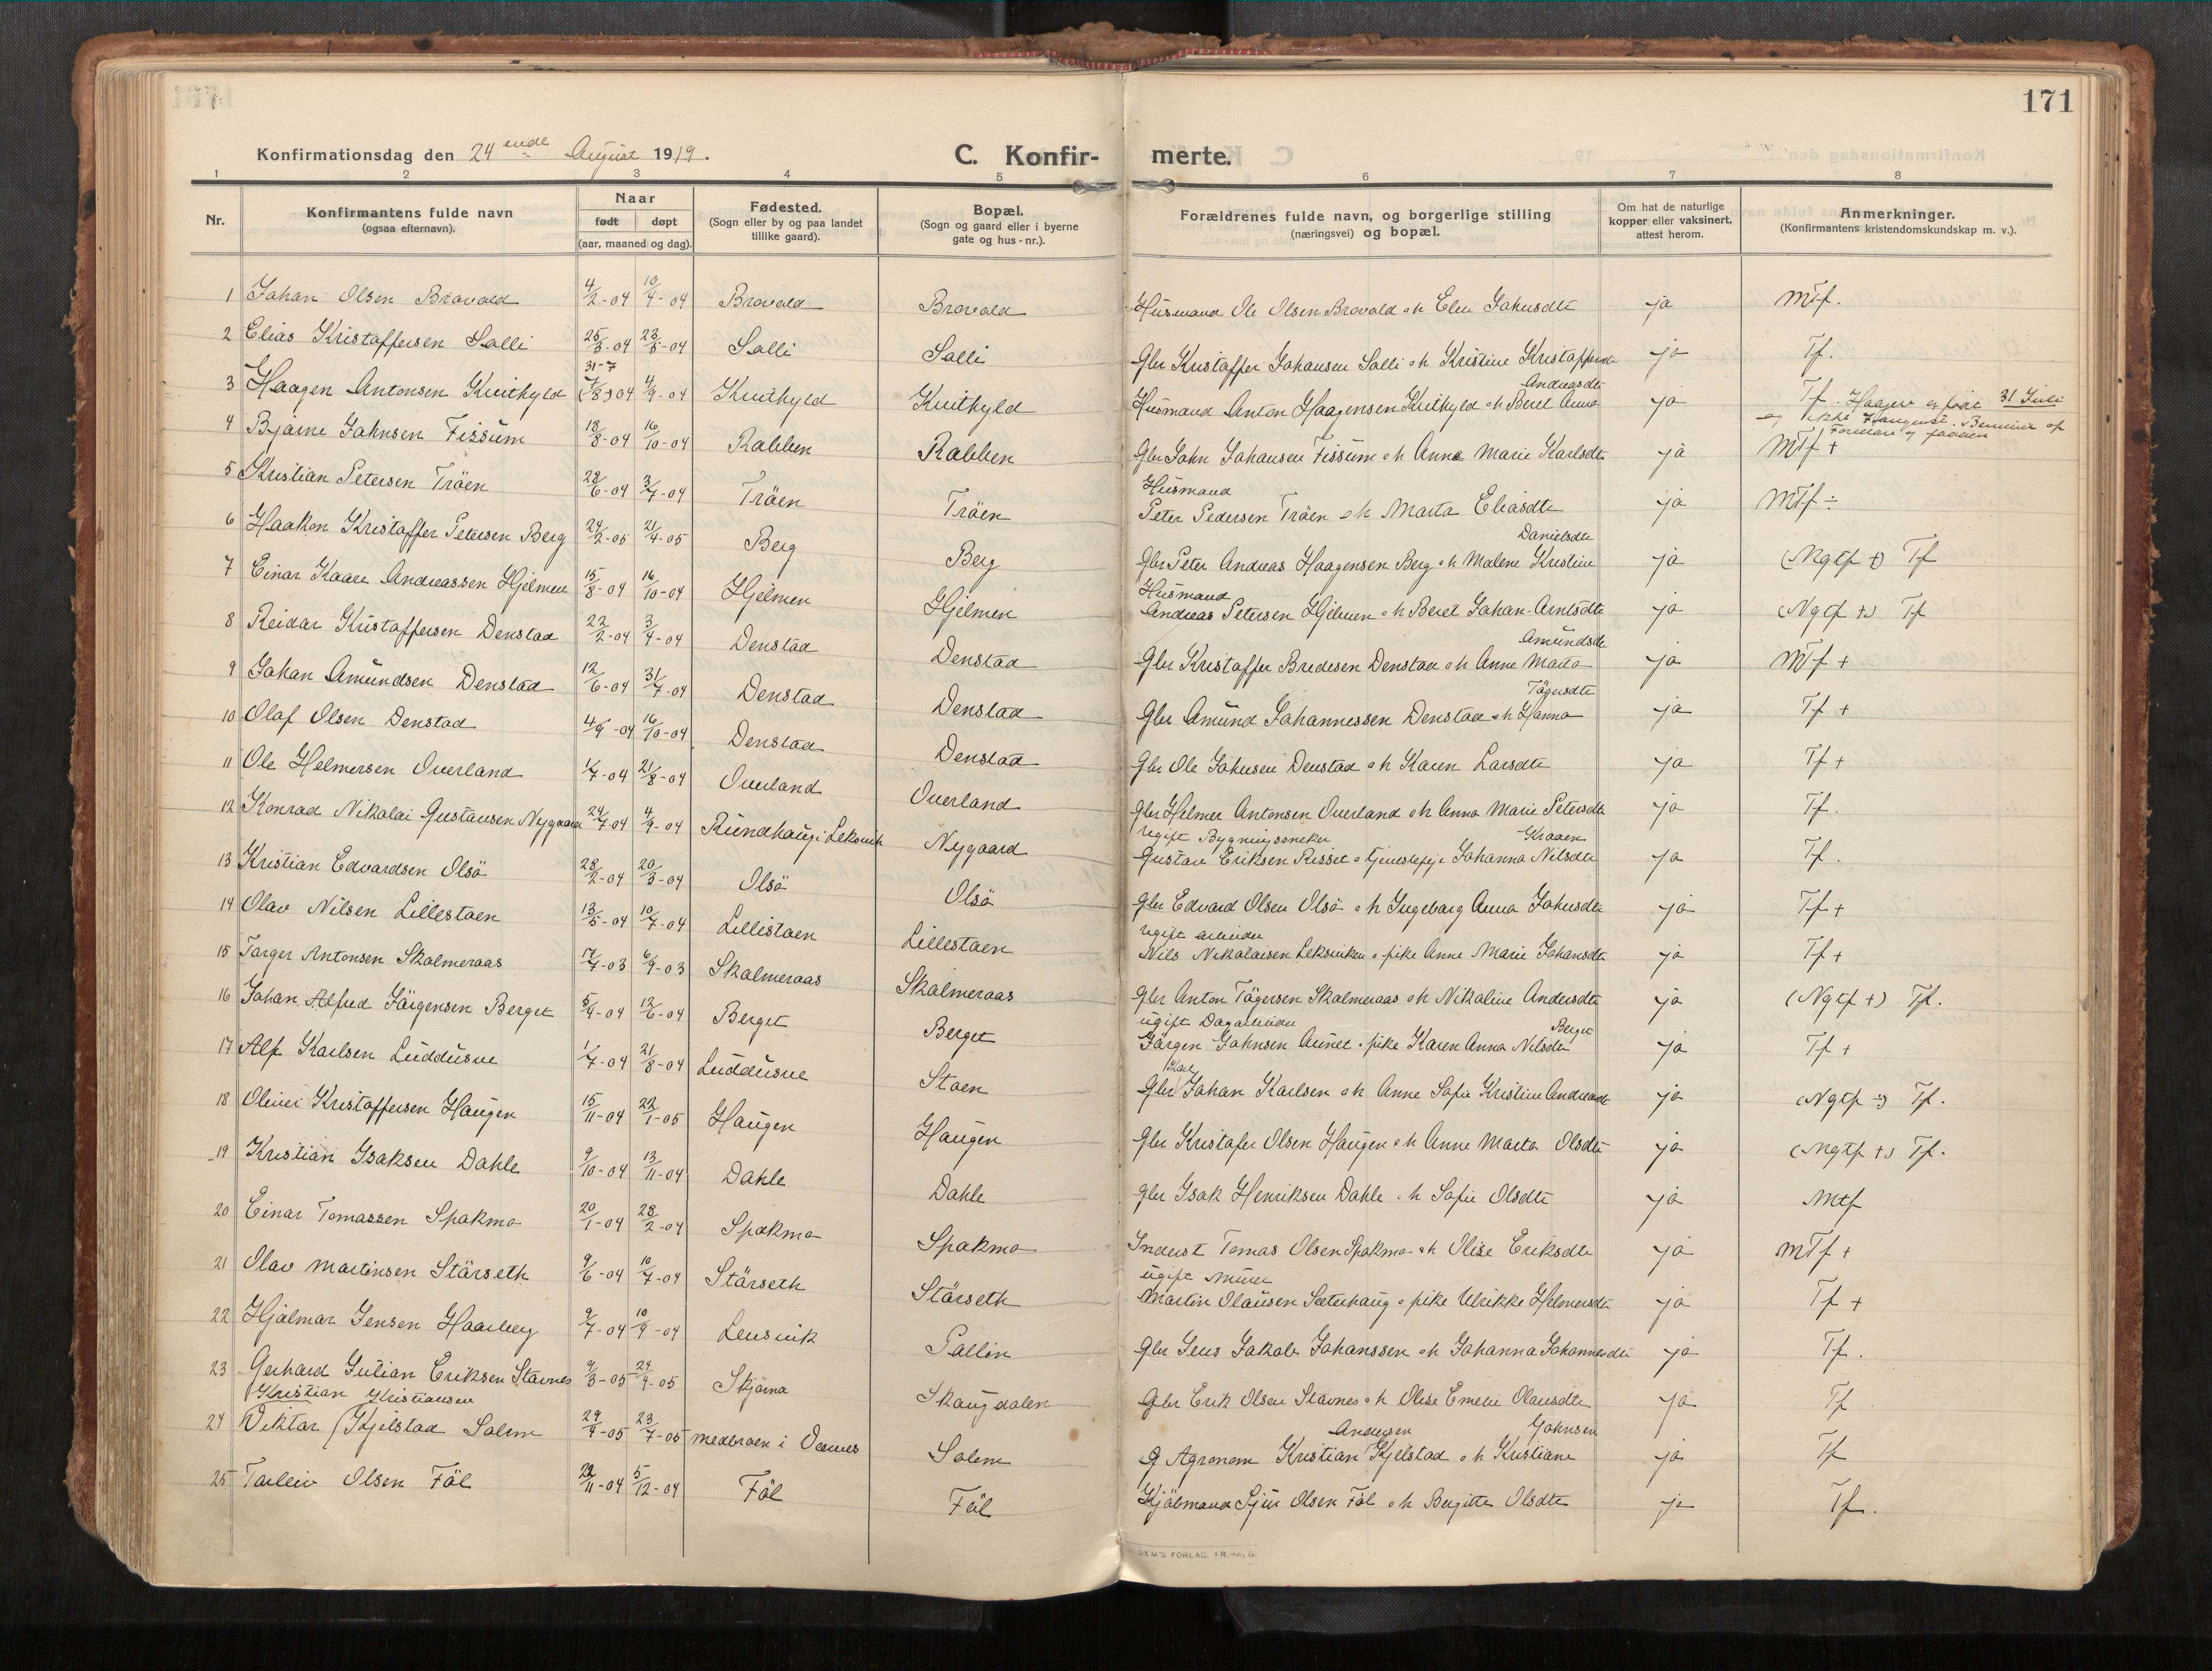 171
Konfirmationsdag den 24 ende August 1919.
C. Konfir- merte.
1 2 3 4 5 6 7 8
Nr.
Konfirmantens fulde navn (ogsaa efternavn).
Naar født døpt (aar, maaned og dag).
Fødested. (Sogn eller by og paa landet tillike gaard).
Bopæl. (Sogn og gaard eller i byerne gate og hus-nr.).
Forældrenes fulde navn, og borgerlige stilling (næringsvei) og bopæl.
Om hat de naturlige kopper eller vaksinert, attest herom.
Anmerkninger. (Konfirmantens kristendomskundskap m. v.).
1 Johan Olsen Brovold 4/2-04 10/4-04 Brovold Brovold Husmand Ole Olsen Brovold o h Elen Johnsdtr ja Mtf.
2 Elias Kristoffersen Solli 25/3-04 23/5-04 Solli Solli Gbr Kristoffer Johansen Solli o h Kristine Kristoffersdtr ja Tf.
31-7 Andreasdtr
3 Haagen Antonsen Kvithyld (7/8) 04 4/9-04 Kvithyld Kvithyld Husmand Anton Haagensen Kvithyld o h Beret Anna ja Tf. Haagen er født 31 Juli
og ikke 7 august.
4 Bjarne Johnsen Fissum 18/8-04 16/10-04 Rabben Rabben Gbr John Johansen Fissum o h Anna Marie Karlsdtr ja Mtf +
Husmand
5 Kristian Petersen Trøen 28/6-04 3/7-04 Trøen Trøen Peter Pedersen Trøen o h Marta Eliasdtr ja Mtf ÷
Danielsdtr
6 Haakon Kristoffer Petersen Berg 24/2-05 21/4-05 Berg Berg Gbr Peter Andreas Haagensen Berg o h Malene Kristine ja (Ngtf +) Tf
Husmand
7 Einar Kaare Andreassen Hjelmen 15/8-04 16/10-04 Hjelmen Hjelmen Andreas Petersen Hjelmen o h Beret Johan-Arntsdtr ja (Ngtf +) Tf
Amundsdtr
8 Reidar Kristoffersen Denstad 22/2-04 3/4-04 Denstad Denstad Gbr Kristoffer Bredesen Denstad o h Anne Marta ja Mtf +
Tøgersdtr
9 Johan Amundsen Denstad 12/6-04 31/7-04 Denstad Denstad Gbr Amund Johannessen Denstad o h Hanna ja Tf +
10 Olaf Olsen Denstad 4/9-04 16/10-04 Denstad Denstad Gbr Ole Johnsen Denstad o h Karen Larsdtr ja Tf +
11 Ole Helmersen Overland 1/7-04 21/8-04 Overland Overland Gbr Helmer Antonsen Overland o h Anna Marie Petersdtr ja Tf.
ugift Bygningssnekker Kraaen
12 Konrad Nikolai Gustavsen Nygaard 24/7-04 4/9-04 Rundhaug i Leksvik Nygaard Gustav Eriksen Risset o tjenestepige Johanna Nilsdtr ja Tf.
13 Kristian Edvardsen Olsø 28/2-04 20/3-04 Olsø Olsø Gbr Edvard Olsen Olsø o h Ingeborg Anna Johnsdtr ja Tf +
ugift arbeider
14 Olav Nilsen Lillestøen 13/5-04 10/7-04 Lillestøen Lillestøen Nils Nikolaisen Leksviken o pike Anne Marie Johansdtr ja Tf +
15 Torger Antonsen Skalmeraas 17/7-03 6/9-03 Skalmeraas Skalmeraas Gbr Anton Tøgersen Skalmeraas o h Nikoline Andersdtr ja (Ngtf +) Tf.
ugift Dagarbeider Berget
16 Johan Alfred Jørgensen Berget 5/4-04 12/6-04 Berget Berget Jørgen Johnsen Aunet o pike Karen Anna Nilsdtr ja Tf +
Karl
17 Alf Karlsen Luddusve 1/7-04 21/8-04 Luddusve Støen Gbr Johan Karlsen o h Anne Sofie Kristine Andreasdtr ja (Ngtf ÷) Tf.
18 Oliver Kristoffersen Haugen 15/11-04 22/1-05 Haugen Haugen Gbr Kristofer Olsen Haugen o h Anne Marta Olsdtr ja (Ngtf +) Tf.
19 Kristian Isaksen Dahle 9/10-04 13/11-04 Dahle Dahle Gbr Isak Henriksen Dahle o h Sofie Olsdtr ja Mtf
20 Einar Tomassen Spakmo 20/1-04 28/2-04 Spakmo Spakmo Inderst Tomas Olsen Spakmo o h Olise Eriksdtr ja Mtf +
ugift Murer
21 Olav Martinsen Størseth 9/6-04 10/7-04 Størseth Størseth Martin Olausen Sæterhaug o pike Ulrikke Helmersdtr ja Tf +
22 Hjalmar Jensen Haarberg 9/7-04 10/9-04 Lensvik Pallin Gbr Jens Jakob Johanssen o h Johanna Johannesdtr ja Tf.
23 Gerhard Julian Eriksen Stavnes 9/3-05 24/4-05 Skjørna Skaugdalen Gbr Erik Olsen Stavnes o h Olise Emelie Olausdtr ja Tf
Kristian Kristiansen Andersen Johnsen
24 Viktor Kjelstad Solem 29/4-05 23/7-05 Medbroen i Værnes Solem G Agronom Kristian Kjelstad o h Kristiane ja Tf
25 Torleiv Olsen Føl 22/11-04 5/12-04 Føl Føl Kjølmand Sjur Olsen Føl o h Bergitte Olsdtr ja Tf.
SEM'S FORLAG, FR.HALD.